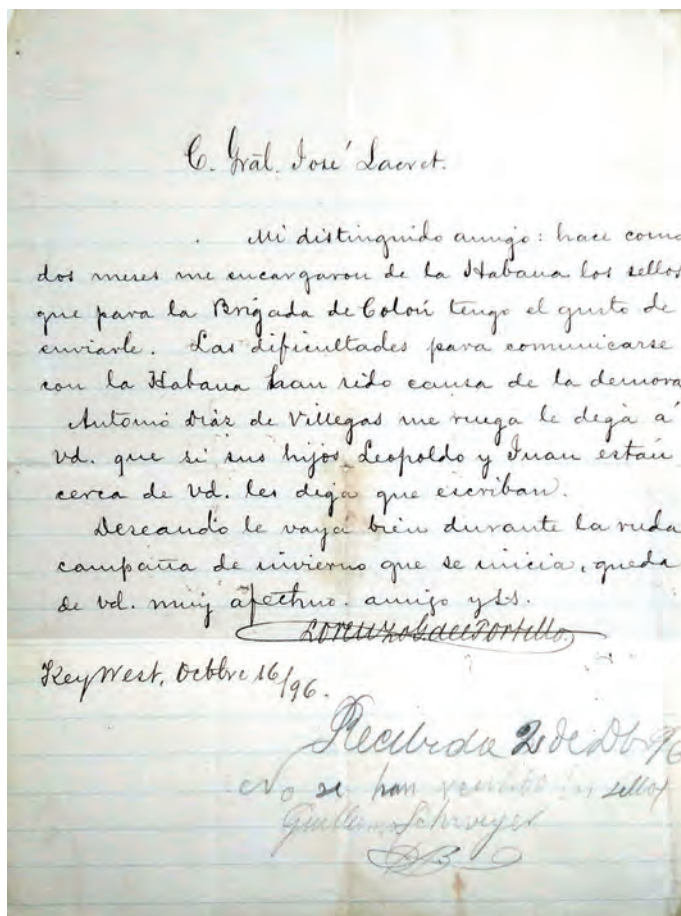 C. Gràl. José Lacret.
Mi distinguido amigo: hace como
dos meses me encargaron de la Habana los sellos
que para la Brigada de Colón tengo el gusto de
enviarle. Las dificultades para comunicarse
con la Habana han sido causa de la demora
Antonio Diaz de Villegas me ruega le diga á
Vd. que si sus hijos Leopoldo y Juan están
cerca de Vd. les diga que escriban.
Deseando le vaya bien durante la ruda
campaña de invierno que se inicia, queda
de vd. muy afectmo. amigo y SS.
Lorenzo G. del Portillo.
Key West, Octbre 16/96.
Recibida 2 de Db 96
No se han recibido los sellos
Guillermo Schweyer